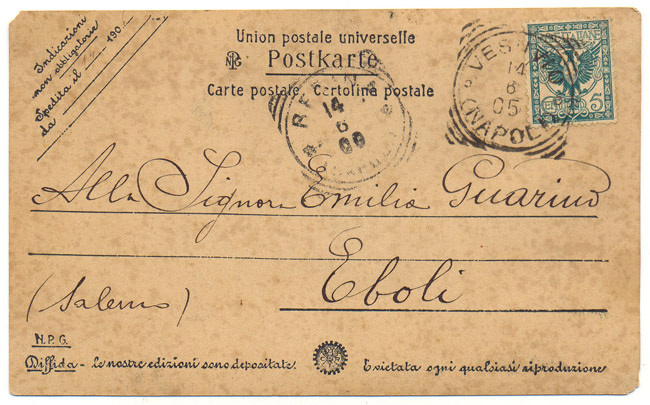 Indicazioni
non obbligatorie
Spedita il 14 - 190
da
Union postale universelle
Postkarte
Carte postale. Cartolina postale
14
6
VESUV
14
6
05
(NAPOLI)
5
Alla Signora Emilia Guarino
Eboli
(Salerno)
N.P.G.
Diffida - le nostre edizioni sono depositate. E vietata ogni qualsiasi riproduzione